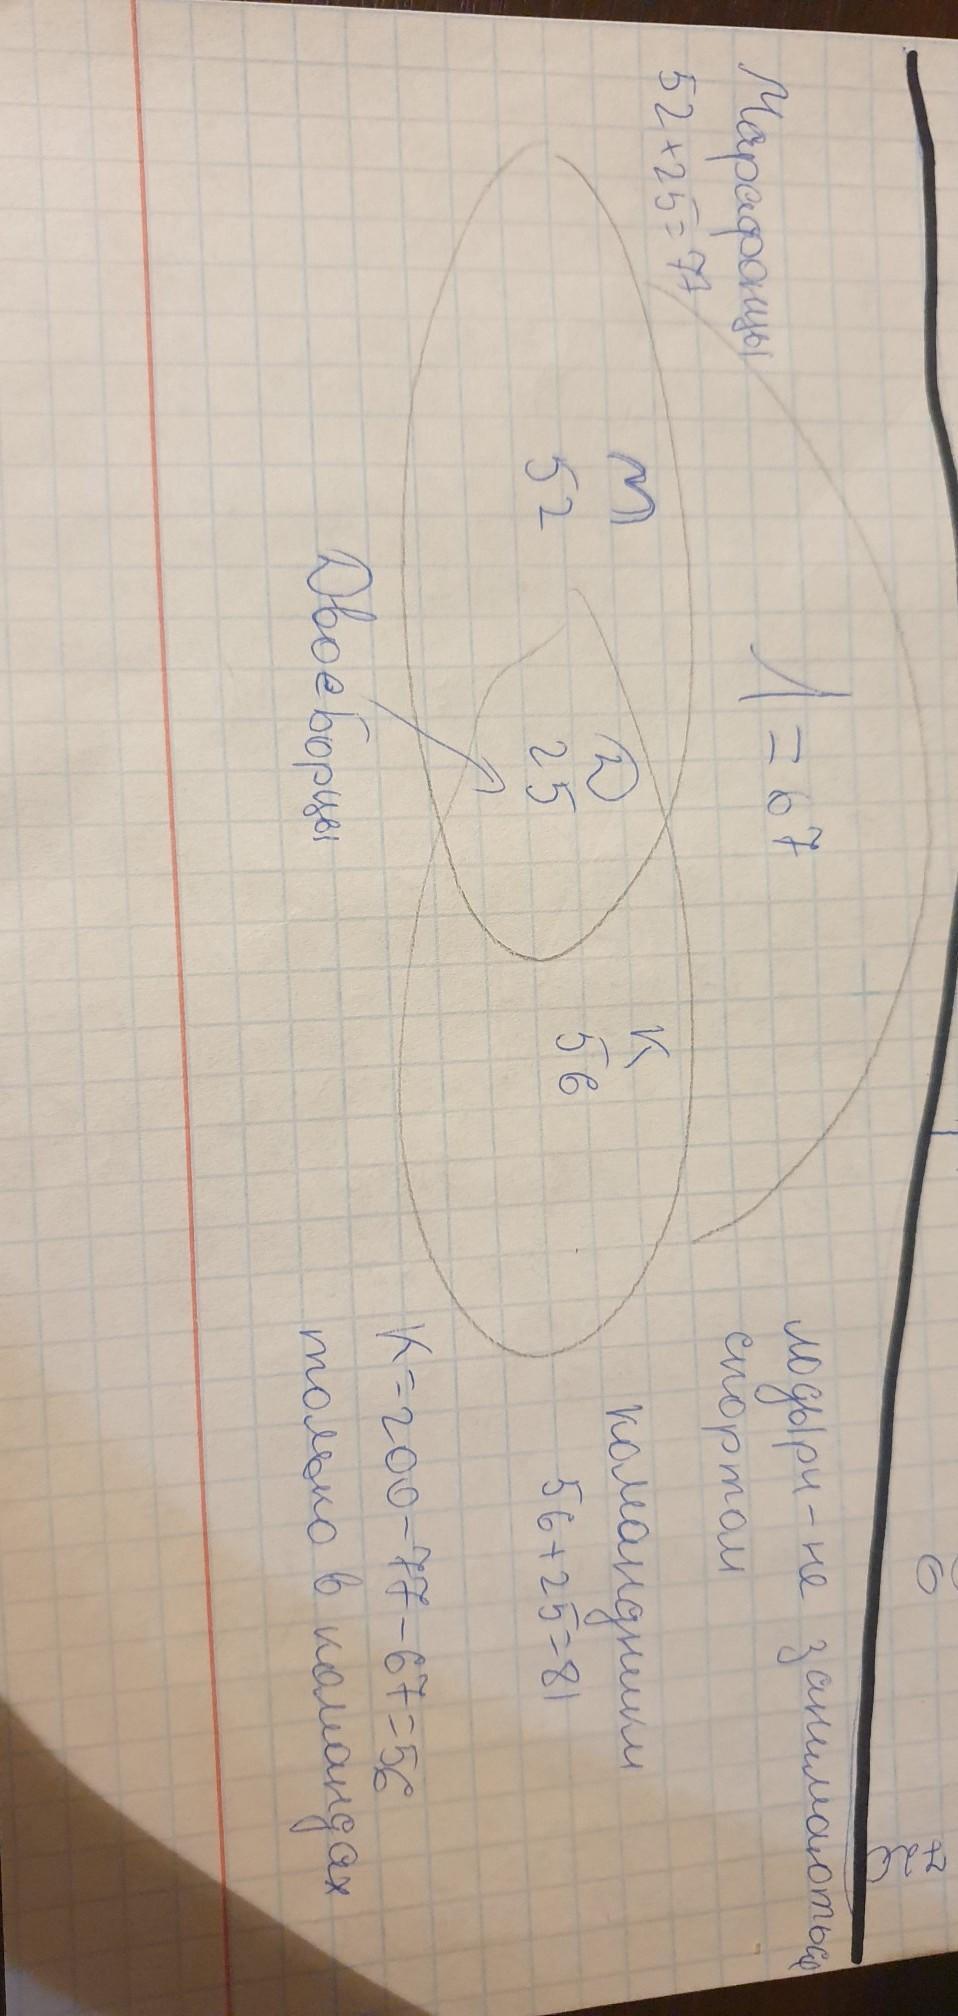 Марафонцы
52+25=77
Л=67
лодыри-не занимаються
спортом
М
52
Д
25
К
56
командники
56+25=81
Двоеборцы
К=200-77-67=56
только в командах